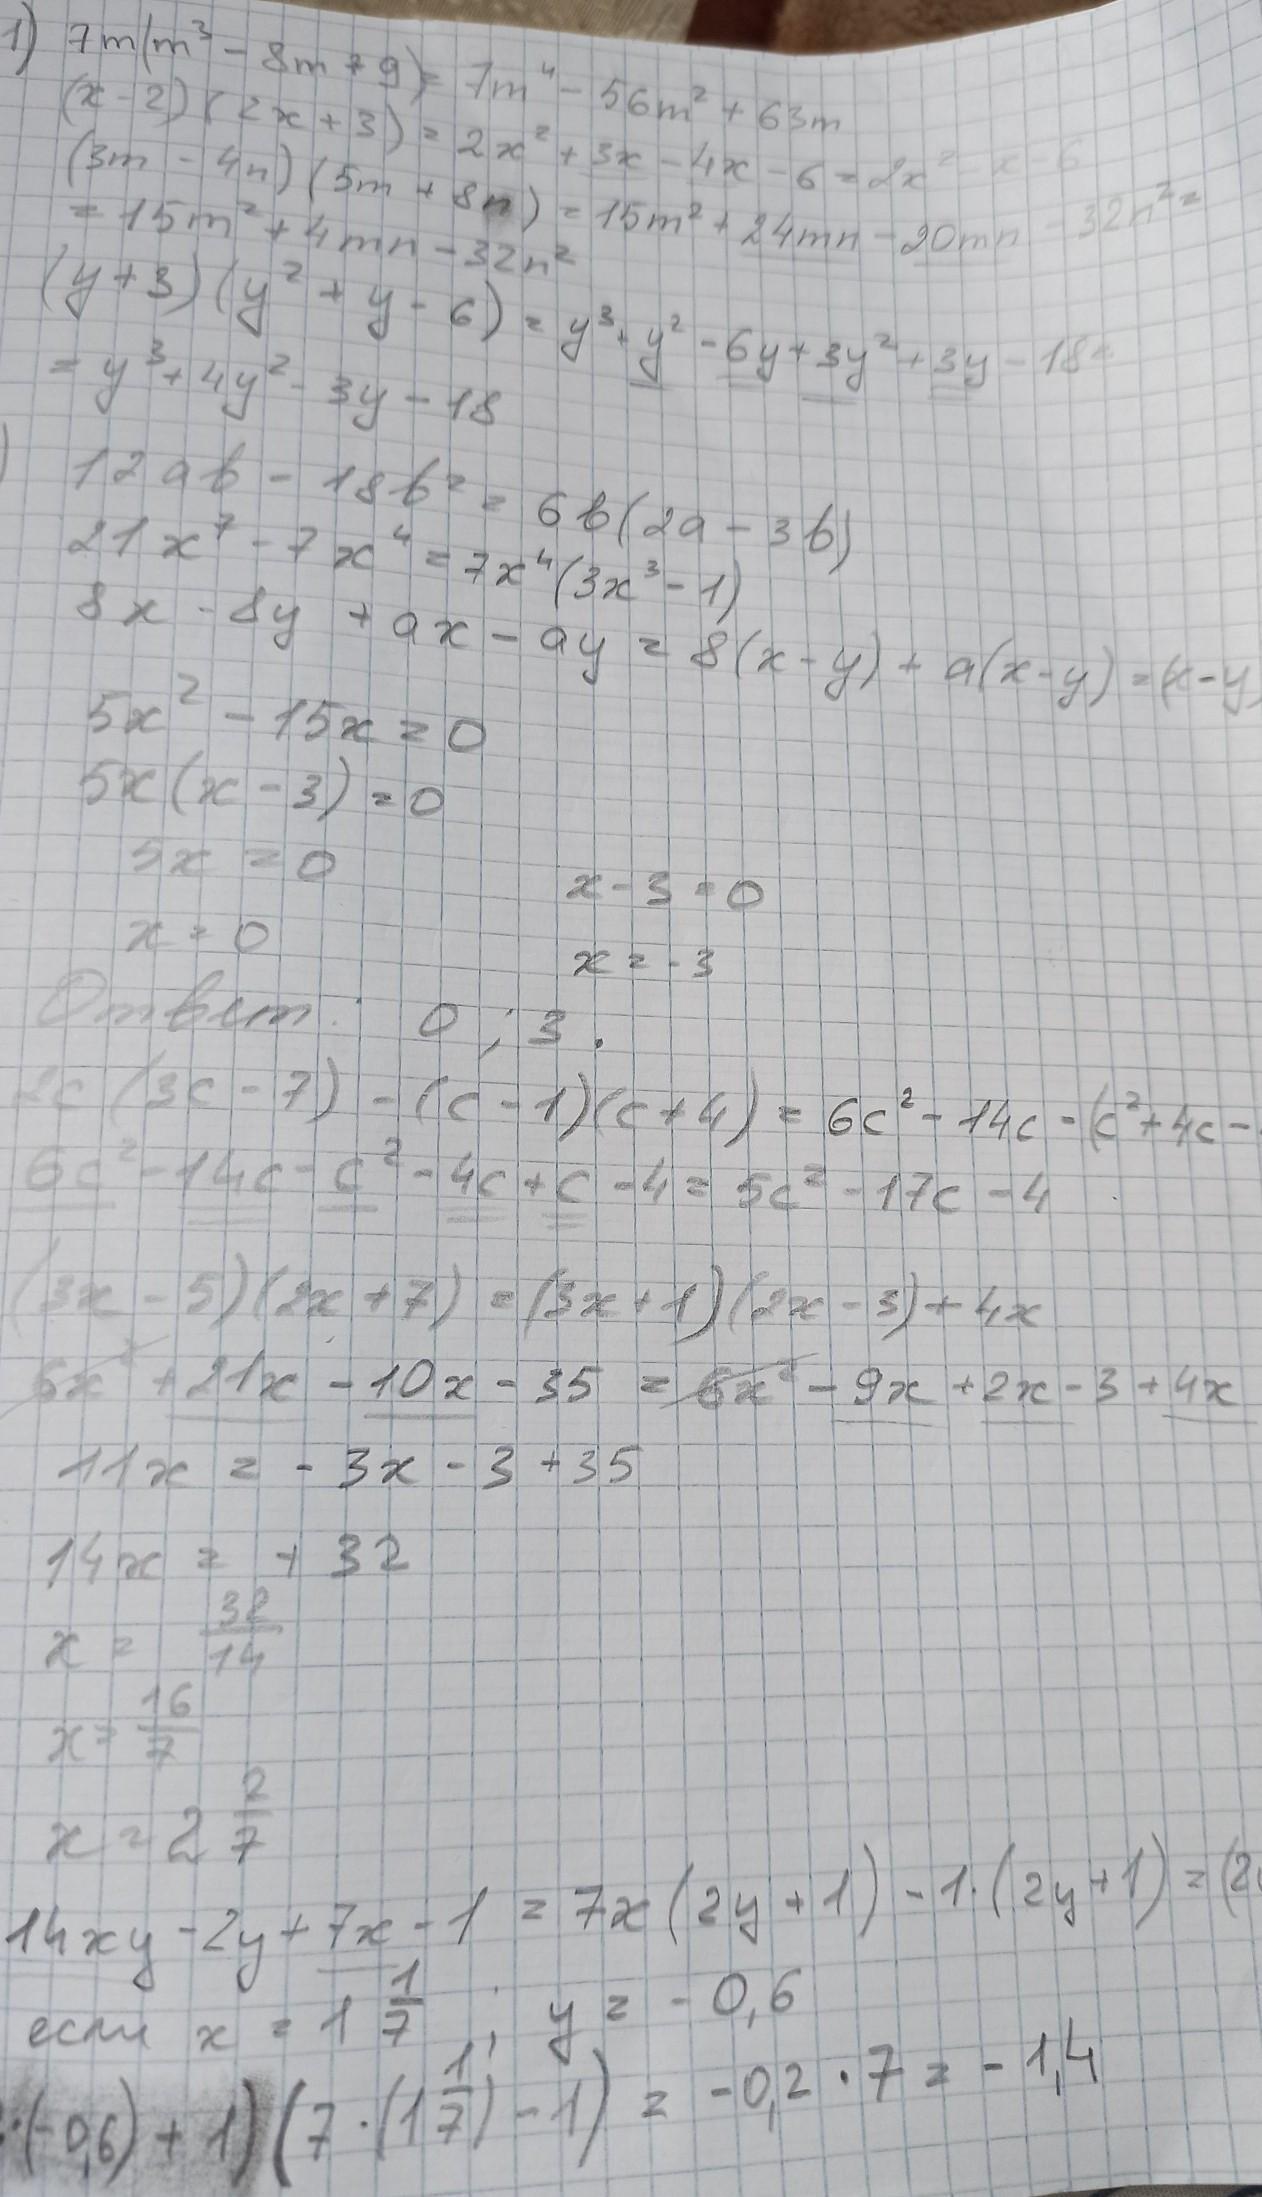 1) 7m(m³ - 8m + 9) = 7m⁴ - 56m² + 63m
(x - 2)(2x + 3) = 2x² + 3x - 4x - 6 = 2x² - x - 6
(3m - 4n)(5m + 8n) = 15m² + 24mn - 20mn - 32n² =
= 15m² + 4mn - 32n²
(y + 3)(y² + y - 6) = y³ + y² - 6y + 3y² + 3y - 18 =
= y³ + 4y² - 3y - 18
) 12ab - 18b² = 6b(2a - 3b)
21x⁷ - 7x⁴ = 7x⁴(3x³ - 1)
8x - 8y + ax - ay = 8(x - y) + a(x - y) = (x - y)
5x² - 15x = 0
5x(x - 3) = 0
5x = 0 x - 3 = 0
x = 0 x = -3
Ответ: 0 ; 3.
2c(3c - 7) - (c - 1)(c + 4) = 6c² - 14c - (c² + 4c -
6c² - 14c - c² - 4c + c - 4 = 5c² - 17c - 4
(3x - 5)(2x + 7) = (3x + 1)(2x - 3) + 4x
6x² + 21x - 10x - 35 = 6x² - 9x + 2x - 3 + 4x
11x = - 3x - 3 + 35
14x = + 32
x = 32/14
x = 16/7
x = 2 2/7
14xy - 2y + 7x - 1 = 7x(2y + 1) - 1·(2y + 1) = (2y
если x = 1 1/7 ; y = - 0,6
·(-0,6) + 1)(7·(1 1/7) - 1) = -0,2 · 7 = - 1,4